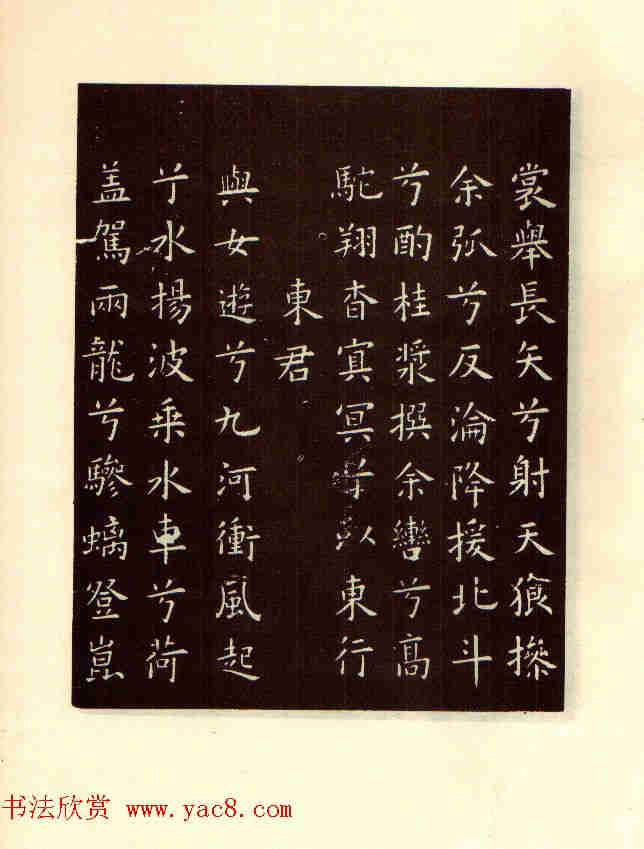 裳舉長矢兮射天狼操
余弧兮反淪降援北斗
兮酌桂漿撰余轡兮高
駝翔杳冥冥兮以東行
東君
與女遊兮九河衝風起
兮水揚波乘水車兮荷
盖駕兩龍兮驂螭登崑
书法欣赏 www.yac8.com